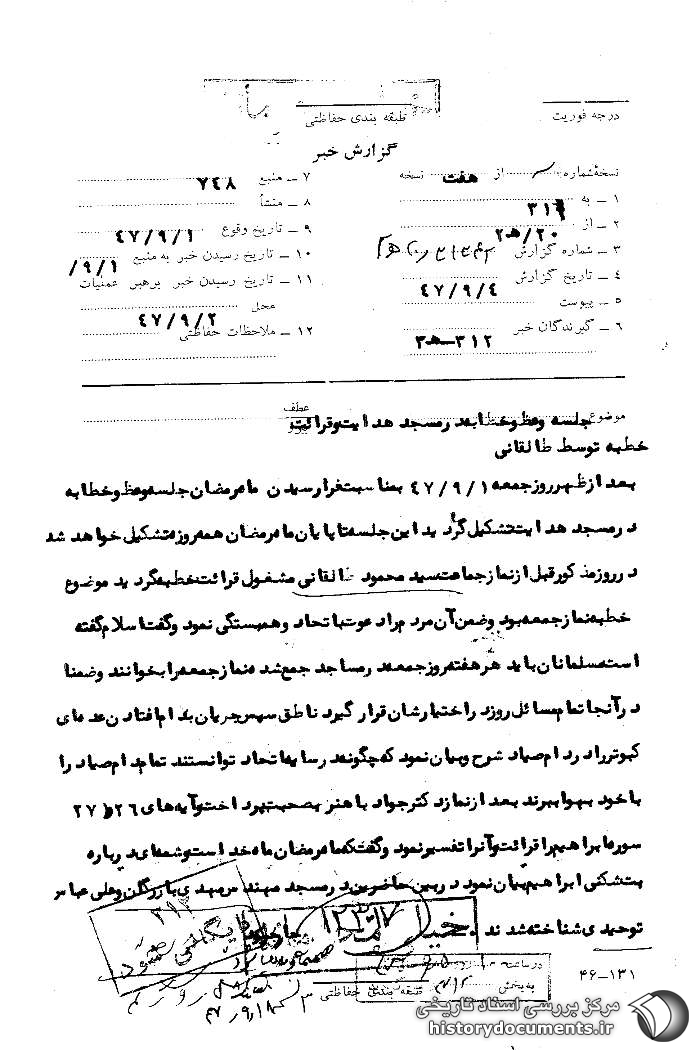 درجه فوریت
طبقه بندی حفاظتی
گزارش خبر
نسخهٔ شماره از هفت نسخه
۱ ـ به ۳۱۶
۲ ـ از ۲۰/ه۲
۳ ـ شماره گزارش
۴ ـ تاریخ گزارش ۴۷/۹/۴
۵ ـ پیوست
۶ ـ گیرندگان خبر ۳۱۲ــه۳
۷ ـ منبع ۷۴۸
۸ ـ منشأ
۹ ـ تاریخ وقوع ۴۷/۹/۱
۱۰ ـ تاریخ رسیدن خبر به منبع ۹/۱/
۱۱ ـ تاریخ رسیدن خبر برهبر عملیات
محل ۴۷/۹/۲
۱۲ ـ ملاحظات حفاظتی
موضوع جلسه وعظ وخطابه در مسجد هدایت وقرائت
عطف
خطبه توسط طالقانی
بعد از ظهر روز جمعه ۴۷/۹/۱ بمناسبت فرارسیدن ماه رمضان جلسه وعظ وخطابه
در مسجد هدایت تشکیل گردید این جلسه تا پایان ماه رمضان همه روزه تشکیل خواهد شد
در روز مذکور قبل از نماز جماعت سید محمود طالقانی مشغول قرائت خطبه گردید موضوع
خطبه نماز جمعه بود وضمن آن مردم را دعوت با تحاد وهمبستگی نمود وگفت اسلام گفته
است مسلمانان باید هر هفته روز جمعه در مساجد جمع شده نماز جمعه را بخوانند وضمنا
در آنجا تمام مسائل روز در اختیارشان قرار گیرد ناطق سپس جریان بدام افتادن عده‌ای
کبوتر را در دام صیاد شرح وبیان نمود که چگونه در سایه اتحاد توانستند تمام دام صیاد را
با خود بهوا ببرند بعد از نماز دکتر جواد باهنر بصحبت پرداخت وآیه‌های ۲۶ و ۲۷
سوره ابراهیم را قرائت وآنرا تفسیر نمود وگفت که ماه رمضان ماه خداست وشمه‌ای درباره
بت شکنی ابراهیم بیان نمود در بین حاضرین در مسجد مهندس مهدی بازرگان وعلی عباس
توحیدی شناخته شدند .
خیلی
۳۱۲
بایگانی شود
در ساعت
به بخش ۳۱۲
طبقه بندی حفاظتی
۴۷/۹/۱۸
۴۶-۱۳۱
مرکز بررسی اسناد تاریخی
historydocuments.ir